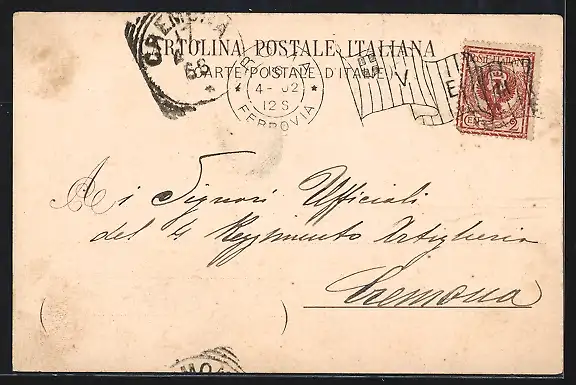 CARTOLINA POSTALE ITALIANA
(CARTE POSTALE D'ITALIE)
CREMONA
4-02
12 S
FERROVIA
V
E
POSTE ITALIANE
CENT. 2
Ai Signori Ufficiali
del 4 Reggimento Artiglieria
Cremona
( )